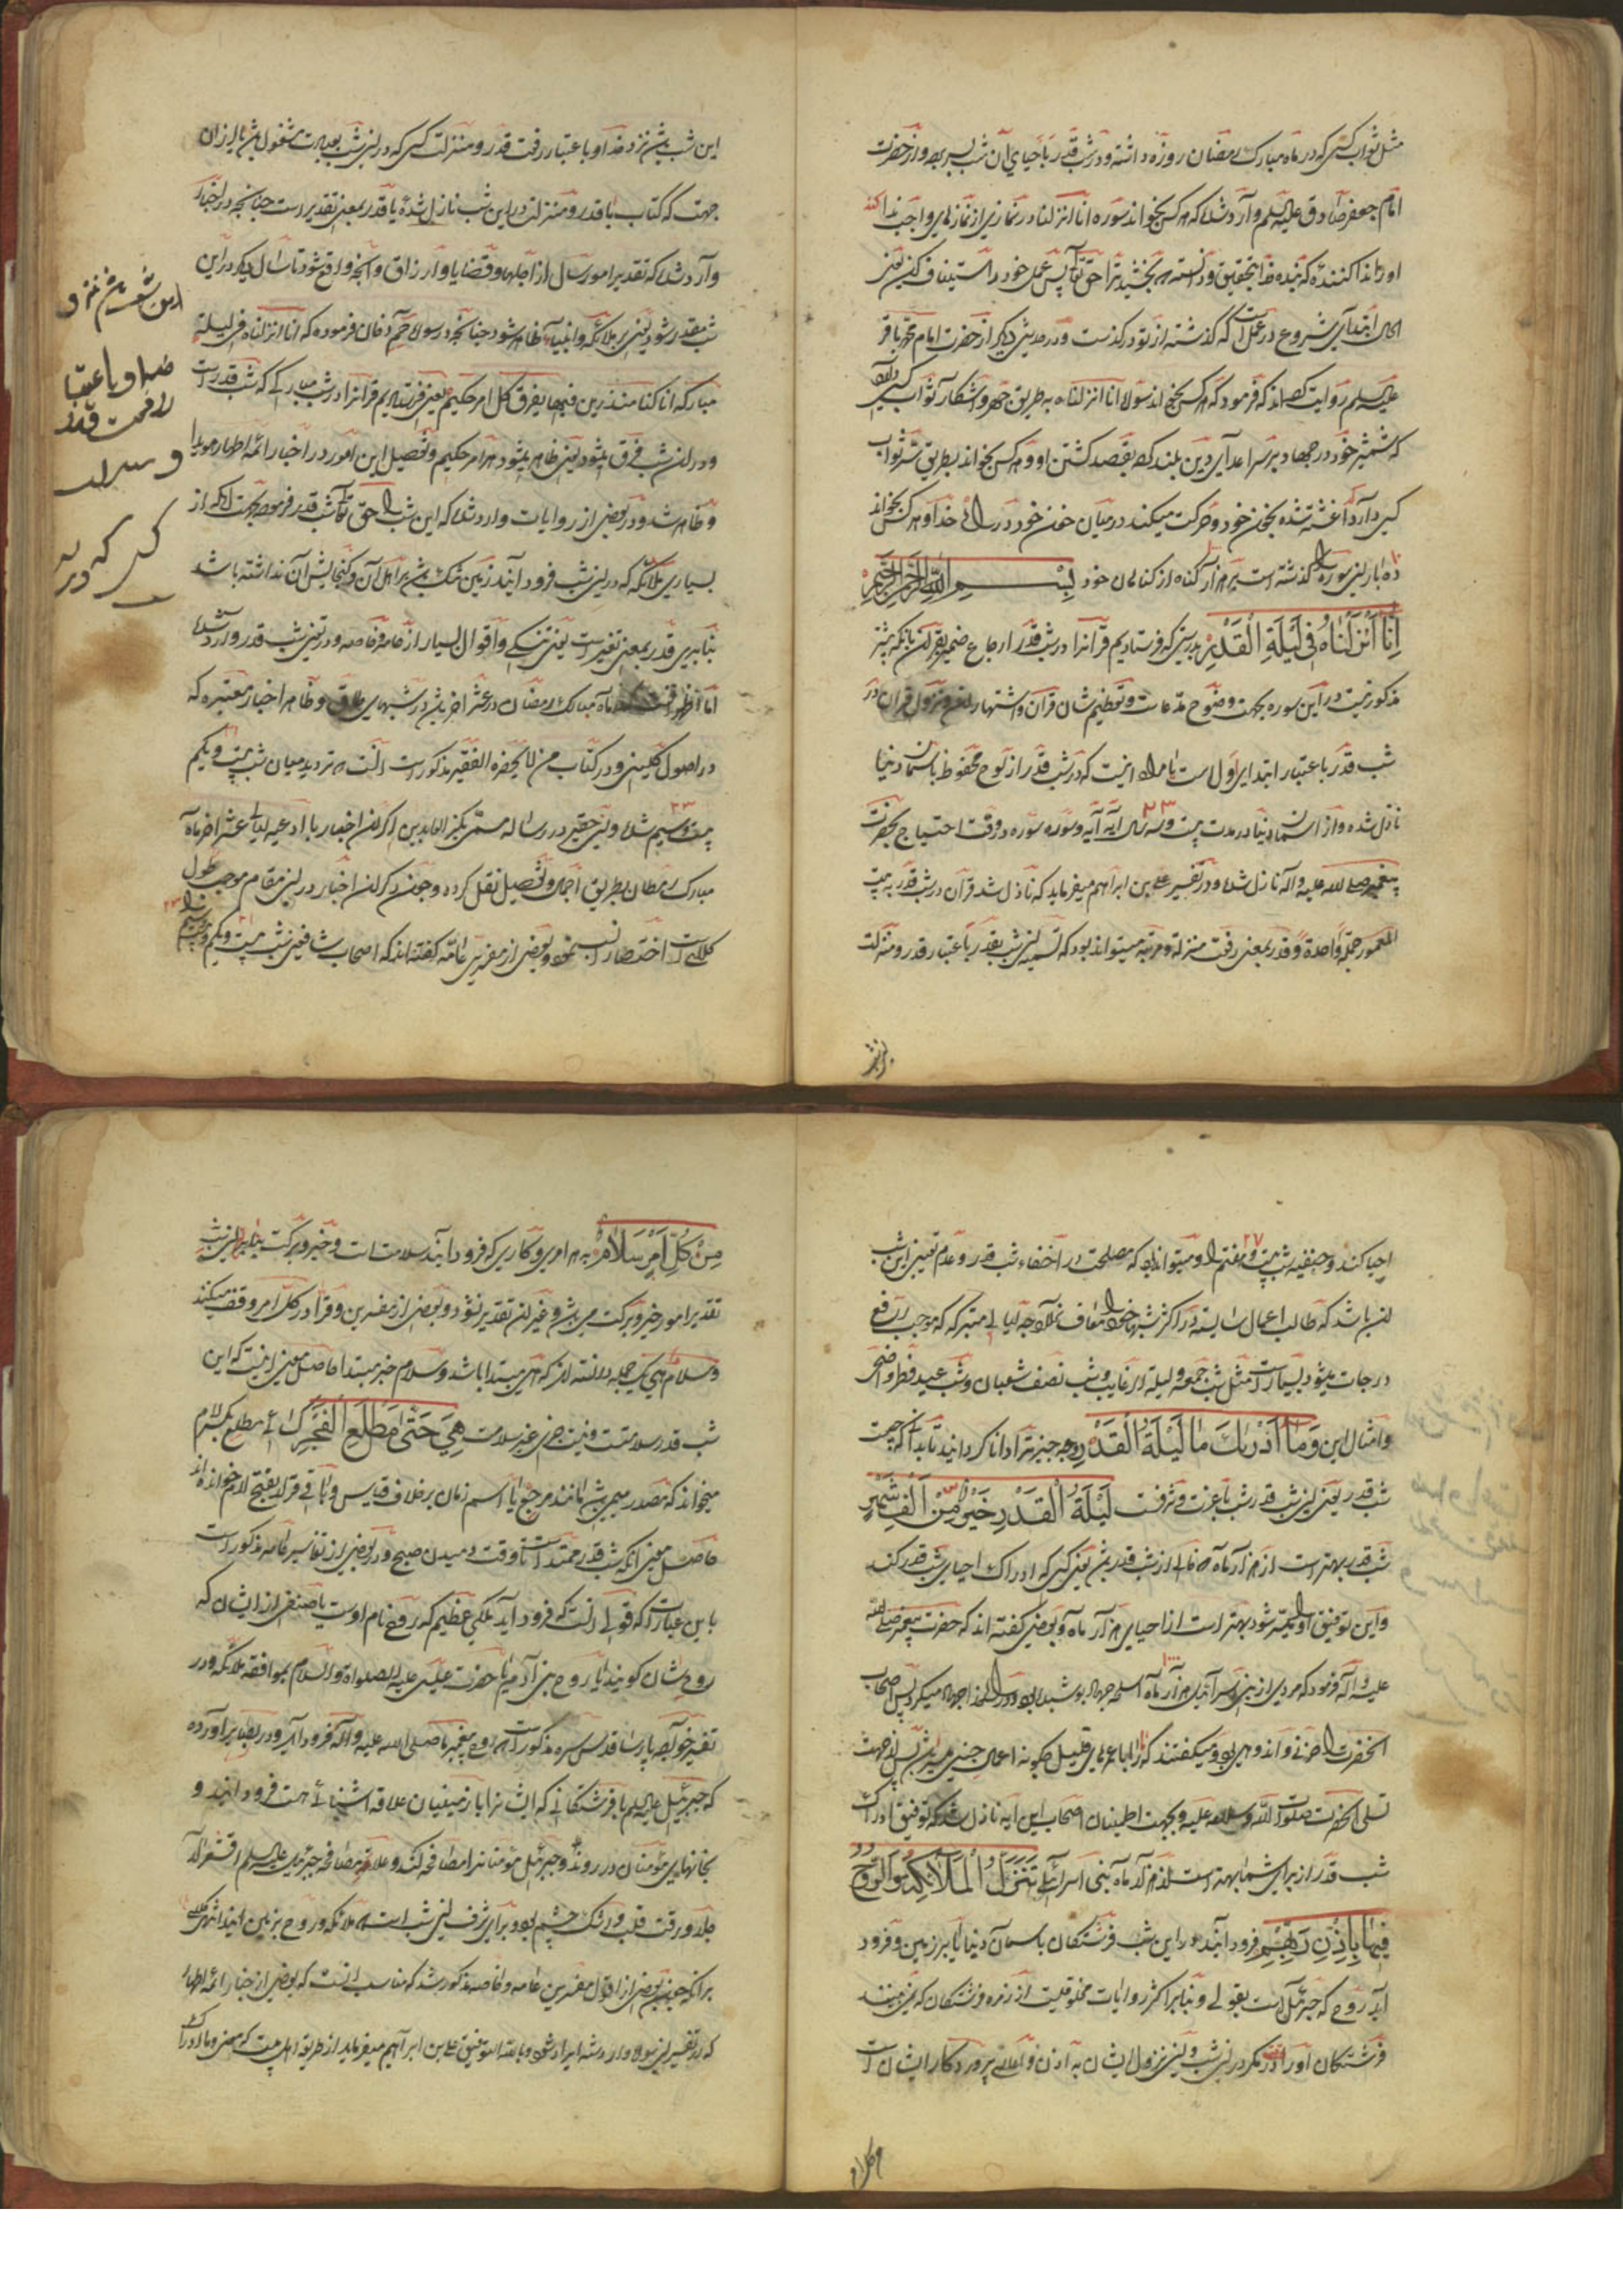 مثل ثواب کسی که در ماه مبارک رمضان روزه داشته و در شب قدر با حیای آن شب بسر برد و از حضرت
امام جعفر صادق علیه السلم وارد شده که هر کس بخواند سوره انا انزلنا در نمازی از نمازهای واجب ندا کند
او را ندا کننده که ای بنده خدا بتحقیق و دانسته که بخشید ترا حق تعالی پس عمل خود را استیناف کن یعنی
الحال ابتدای شروع در عمل است که گذشته از تو در گذشت و در حدیثی دیگر از حضرت امام محمد باقر
علیه السلم روایت کرده اند که فرمود که هر کس بخواند سوره انا انزلناه به طریق جهر و آشکار ثواب کسی دارد
که شمشیر خود در جهاد بر سر اعدای دین بلند کرده بقصد کشتن او و هر کس بخواند بطریق سر ثواب
کسی دارد آغشته شده بخون خود و حرکت میکند در میان خون خود در راه خدا و هر کس بخواند
ده بار این سوره را گذشته است بر هزار گناه از گناهان خود بسم الله الرحمن الرحیم
انا انزلناه فی لیلة القدر بدرستی که فرستادیم قرآنرا در شب قدر ارجاع ضمیر بقرآن بانکه پیشتر
مذکور نیست در این سوره بجهت وضوح مدعاست و تعظیم شان قرآن و اشتهار آن و نزول قران در
شب قدر باعتبار ابتدای اول است یا مراد انیست که در شب قدر از لوح محفوظ باسمان دنیا
نازل شده و از اسمان دنیا در مدت بیست و سه سال آیه آیه و سوره سوره در وقت احتیاج بحضرت
پیغمبر صلی الله علیه واله نازل شده و در تفسیر علی بن ابراهیم میفرماید که نازل شد قرآن در شب قدر به بیت
المعمور جملة واحدة و قدر بمعنی رفعت منزلة و مرتبه میتواند بود که تسمیه این شب بقدر باعتبار قدر و منزلت
این شب
این شب باشد نزد خدا و باعتبار رفعت قدر و منزلت کسی که در این شب بعبادت مشغول باشد یا از آن
جهت که کتاب با قدر و منزلت در این شب نازل شده یا قدر بمعنی تقدیر است چنانچه در اخبار
وارد شده که تقدیر امور سال از اجلها و قضایا و ارزاق و آنچه واقع شود تا سال دیگر در این
شب مقدر شود یعنی بر ملائکه و انبیاء ظاهر شود چنانچه در سوره حم دخان فرموده که انا انزلناه فی لیلة
مبارکه انا کنا منذرین فیها یفرق کل امر حکیم یعنی فرستادیم قرآنرا در شب مبارکی که شب قدر است
و در این شب فرق میشود یعنی ظاهر میشود هر امر حکیم و تفصیل این امور در اخبار ائمه اطهار هویدا
و ظاهر شد و در بعضی از روایات وارد شده که این شب را حق تعالی شب قدر فرموده بجهت آنکه از
بسیاری ملائکه که در این شب فرود آیند زمین تنک باشد بر اهل آن و گنجایش آن نداشته باشد
بنابرین قدر بمعنی تنگی است یعنی تنگی و اقوال بسیار از عامه و خاصه در تعیین شب قدر وارد شده
اما اظهر آنست که در ماه مبارک رمضان در عشر اخر باشد در شبهای طاق و ظاهر اخبار معتبره که
در اصول کلینی و در کتاب من لا یحضره الفقیه مذکور است آنست که تردید میان شب بیست و یکم
بیست و سیم شده و این حقیر در رساله مسمی بکنز العابدین اکثر این اخبار با ادعیه لیالی عشر اخر ماه
مبارک رمضان بطریق اجمال و تفصیل نقل کرده و چون ذکر این اخبار در این مقام موجب طول
کلام است اختصار نمود و بعضی از مفسرین عامه گفته اند که اصحاب شافعی شب بیست و یکم و بیست و سیم را
این شب باشد نزد
خدا و باعتبا
رفعت قدر
و منزلت
کسی که در این
احیا کنند و حنفیه شب بیست و هفتم را و میتواند بود که مصلحت در اخفاء شب قدر و عدم تعیین این شب
این باشد که طالب اعمال شایسته در اکثر شبها خود را معاف ندارد چه لیالی متبرکه که موجب رفع
درجات میشود بسیار است مثل شب جمعه و لیلة الرغایب و شب نصف شعبان و شب عید فطر و اضحی
و امثال این وما ادریک ما لیلة القدر و چه چیز ترا دانا گردانید تا بدانی که چیست
شب قدر یعنی این شب قدر شب با عزت و شرفست لیلة القدر خیر من الف شهر
شب قدر بهتر است از هزار ماه که خالی از شب قدر باشد یعنی کسی که ادراک احیای شب قدر کند
و این توفیق او را میسر شود بهتر است از احیای هزار ماه و بعضی گفته اند که حضرت پیغمبر صلی الله
علیه واله فرمود که مردی از بنی اسرائیل هزار ماه اسلحه جهاد پوشیده بود و در راه خدا جهاد میکرد پس اصحاب
آنحضرت را حزنی و اندوهی بود و میگفتند که ما را با عمرهای قلیل چگونه اعمال چنین میسر باشد پس از جهت
تسلی آنحضرت صلوات الله وسلامه علیه و بجهت اطمینان اصحاب این ایه نازل شد که توفیق ادراک
شب قدر از برای شما بهتر است از هزار ماه بنی اسرائیل تنزل الملائکة والروح
فیها باذن ربهم فرود آیند در این شب فرشتگان باسمان دنیا یا بر زمین و فرود
آید روح که جبرئیل است بقولی و بنابر اکثر روایات مخلوقیست از زمره فرشتگان که نمی بینند
فرشتگان او را مگر در این شب و این نزول ایشان به اذن و امر پروردگار ایشان است
من کل امر سلام به هر امری و کاری که فرود آیند سلامت است و خیر و برکت بنابر این شب
تقدیر امور خیر و برکت می باشد و غیر این تقدیر نشود و بعضی از مفسرین و قرا در کل امر وقف میکنند
و سلام هی یک جمله دانسته اند که هی مبتدا باشد و سلام خبر مبتدا حاصل معنی انیست که این
شب قدر سلامتست و نیست چیزی غیر سلامت هی حتی مطلع الفجر کسائی مطلع بکسر لام
میخواند که مصدر میمی باشد مانند مرجع یا اسم زمان بر خلاف قیاس و باقی قراء بفتح لام خوانده اند
حاصل معنی آنکه شب قدر ممتد است تا وقت دمیدن صبح و در بعضی از تفاسیر عامه مذکور است
باین عبارت که قولی آنست که فرود آید ملکی عظیم که روح نام اوست یا صنفی از ایشان که
روح شان گویند یا روح بنی آدم یا حضرت عیسی علیه الصلواة والسلام بموافقه ملائکه و در
تفسیر خواجه پارسا قدس سره مذکور است که روح پیغمبر ما صلی الله علیه واله فرود آید و در بصایر آورده
که جبرئیل علیه السلم با فرشتگانی که ایشانرا با زمینیان علاقه آشنائی هست فرود آیند و
بخانهای مؤمنان در روند و جبرئیل مؤمنانرا مصافحه کند و علامت مصافحه جبرئیل علیه السلم اقشعرار
جلد و رقت قلب و اشک چشم بود و برای شرف این شب است که ملائکه و روح بزمین آیند انتهی کلامه
بدانکه چون بعضی از اقوال مفسرین عامه و خاصه مذکور شد که مناسب انست که بعضی از اخبار ائمه اطهار
که در تفسیر این سوره وارد شده ایراد شود و بالله التوفیق علی بن ابراهیم میفرماید از طریقه اهل بیت که معنی وما ادراک